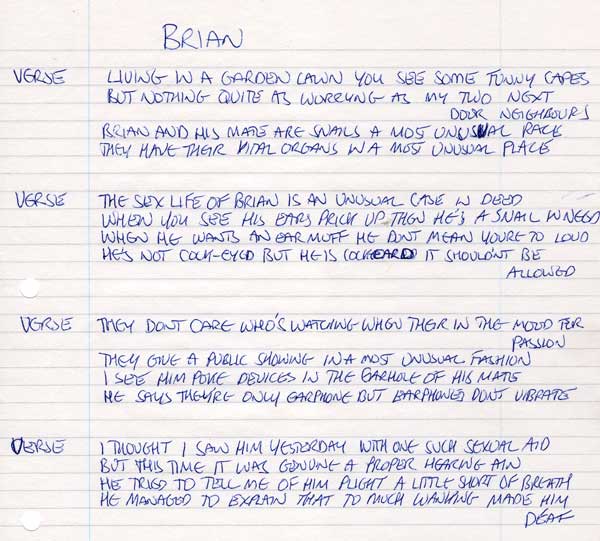 BRIAN
VERSE LIVING IN A GARDEN LAWN YOU SEE SOME FUNNY CAPES
BUT NOTHING QUITE AS WORRYING AS MY TWO NEXT
DOOR NEIGHBOURS
BRIAN AND HIS MATE ARE SNAILS A MOST UNUSUAL RACE
THEY HAVE THEIR VITAL ORGANS IN A MOST UNUSUAL PLACE
VERSE THE SEX LIFE OF BRIAN IS AN UNUSUAL CASE IN DEED
WHEN YOU SEE HIS EARS PRICK UP THEN HE'S A SNAIL IN NEED
WHEN HE WANTS AN EAR MUFF HE DONT MEAN YOURE TO LOUD
HE'S NOT COCK-EYED BUT HE IS COCKEARD IT SHOULDN'T BE
ALLOWED
VERSE THEY DONT CARE WHO'S WATCHING WHEN THEIR IN THE MOOD FER
PASSION
THEY GIVE A PUBLIC SHOWING IN A MOST UNUSUAL FASHION
I SEE HIM POKE DEVICES IN THE EARHOLE OF HIS MATE
HE SAYS THEY'RE ONLY EARPHONE BUT EARPHONES DONT VIBRATE
VERSE I THOUGHT I SAW HIM YESTERDAY WITH ONE SUCH SEXUAL AID
BUT THIS TIME IT WAS GENUNE A PROPER HEARING AIN
HE TRIED TO TELL ME OF HIM PLIGHT A LITTLE SHORT OF BREATH
HE MANAGED TO EXPLAIN THAT TO MUCH WANKING MADE HIM
DEAF